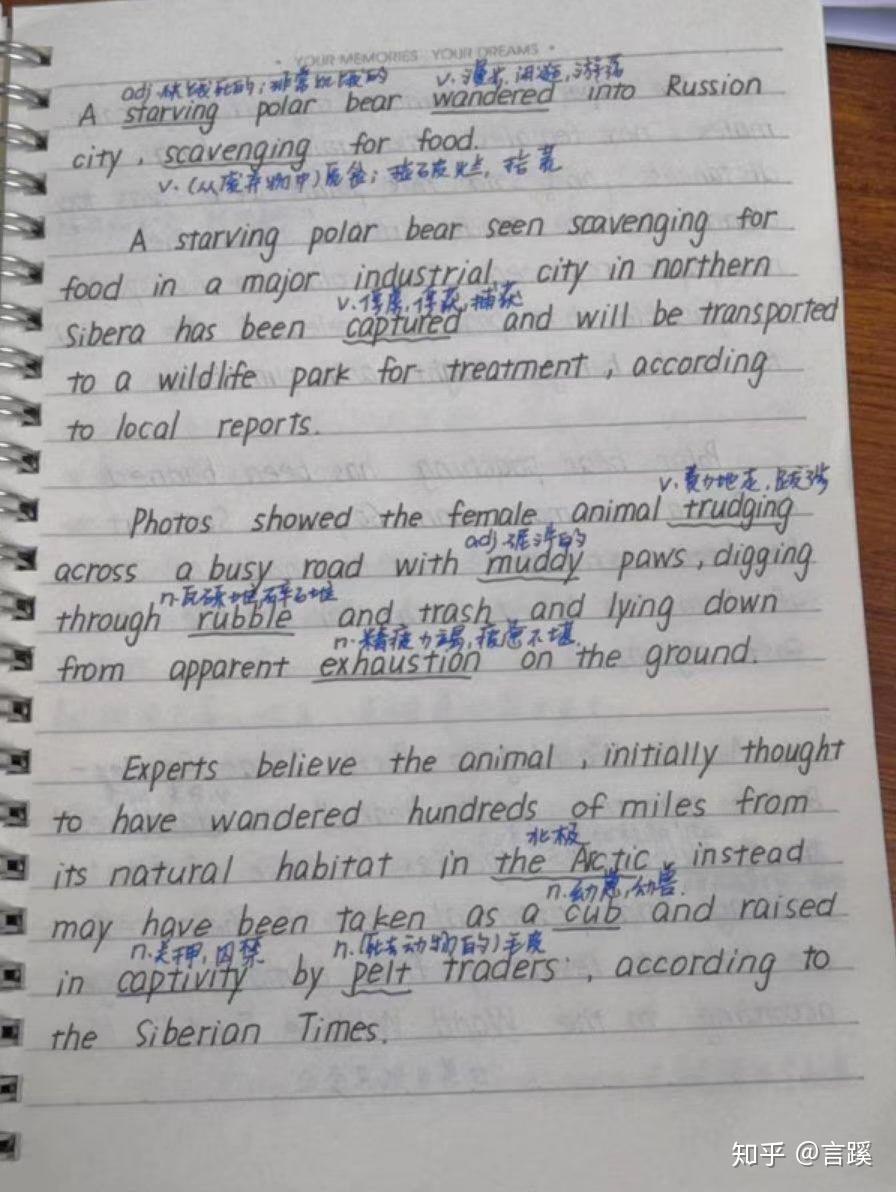 • YOUR MEMORIES YOUR DREAMS •
adj. 快饿死的；非常饥饿的 v. 漫步，闲逛，游荡
A starving polar bear wandered into Russion
city, scavenging for food.
v. (从废弃物中)觅食；捡破烂，拾荒
A starving polar bear seen scavenging for
food in a major industrial city in northern
v. 俘虏，俘获，捕获
Sibera has been captured and will be transported
to a wildlife park for treatment, according
to local reports.
v. 费力地走，跋涉
Photos showed the female animal trudging
adj. 泥泞的
across a busy road with muddy paws, digging
n. 瓦砾堆，碎石堆
through rubble and trash and lying down
n. 精疲力竭，疲惫不堪
from apparent exhaustion on the ground.
Experts believe the animal, initially thought
to have wandered hundreds of miles from
北极
its natural habitat in the Arctic, instead
n. 幼崽，幼兽.
may have been taken as a cub and raised
n. 关押，囚禁 n. (死去动物的)毛皮
in captivity by pelt traders, according to
the Siberian Times.
知乎 @言蹊